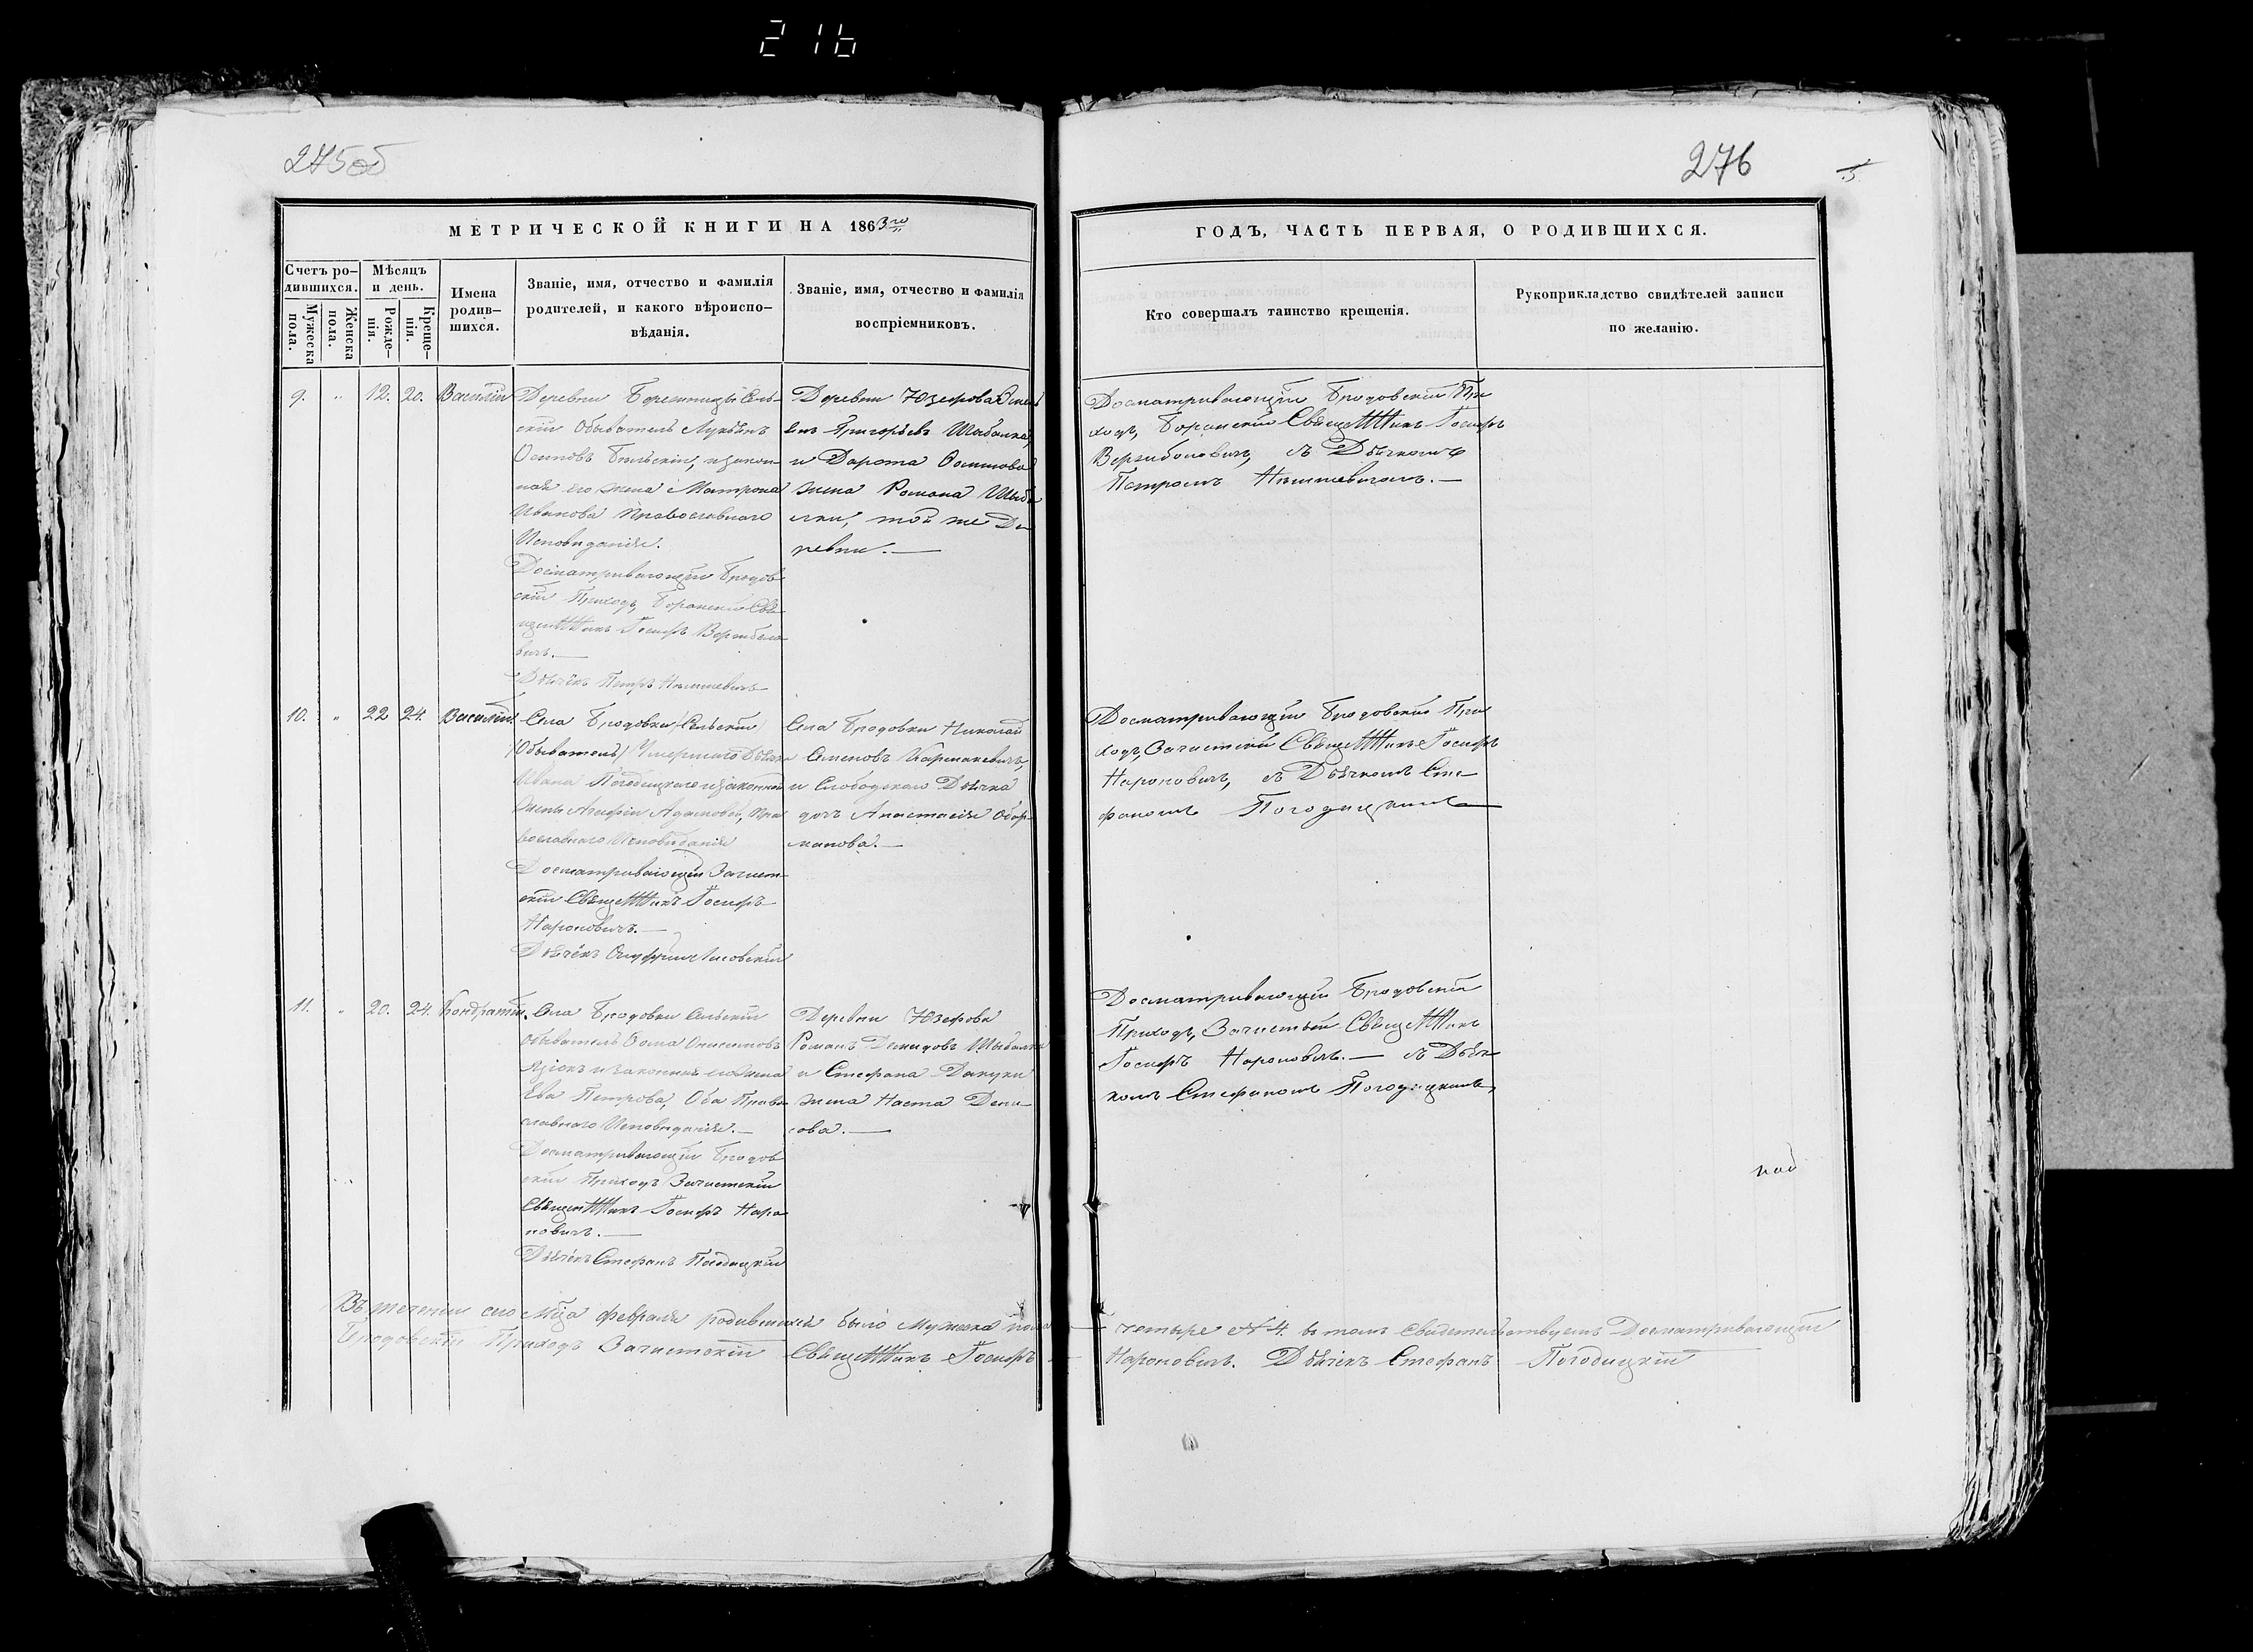 216
275об
276
5.
МЕТРИЧЕСКОЙ КНИГИ НА 1863го
ГОДЪ, ЧАСТЬ ПЕРВАЯ, О РОДИВШИХСЯ.
Счетъ ро-
дившихся.
Мужеска
пола.
Женска
пола.
Мѣсяцъ
и день.
Рожде-
нія.
Креще-
нія.
Имена
родив-
шихся.
Званіе, имя, отчество и фамилія
родителей, и какого вѣроиспо-
вѣданія.
Званіе, имя, отчество и фамилія
воспріемниковъ.
Кто совершалъ таинство крещенія.
Рукоприкладство свидѣтелей записи
по желанію.
9. " 12. 20. Василій
Деревни Сель-
скій Обыватель
Осиповъ Бѣльскій, и закон-
ная его жена Матрона
Иванова Православнаго
Исповиданія.
Досматривающій Бродов-
скій Приходъ, Боранскій Свя-
щенникъ Іосифъ
вичъ.—
Дьячекъ Петръ
Деревни Юзефова
Григорьевъ
и Дарота Осипова
жена Романа Шиба
лки, той же Де
ревни.—
Досматривающій Бродовскій При
ходъ, Боранскій Священникъ Іосифъ
съ Дьячкомъ
Петромъ
10. " 22 24. Василій
Села Бродовки Сельскій
(Обыватель) Умершаго Дьячка
Ивана Погодицкаго и законной
жены Агафіи Адамовой, Пра
вославнаго Исповиданія
Досматривающій Зачист-
скій Священникъ Іосифъ
Нароновичъ.—
Дьячекъ Онуфрій Лисовскій
Села Бродовки Николай
Семеновъ
и Слободскаго Дьячка
дочь Анастасія
Досматривающій Бродовскій При
ходъ, Зачистскій Священникъ Іосифъ
Нароновичъ, съ Дьячкомъ Сте-
фаномъ Погодицкимъ
11. " 20. 24. Кондратій.
Села Бродовки Сельскій
обыватель Фома Онисимовъ
и законная его жена
Ева Петрова, Оба Право
славнаго Исповиданія.—
Досматривающій Бродов
скій Приходъ Зачистскій
Священникъ Іосифъ Наро
новичъ.—
Дьячекъ Стефанъ Погодицкій
Деревни Юзефова
Романъ Демидовъ
и Стефана
жена Наста Дени-
сова.—
Досматривающій Бродовскій
Приходъ, Зачистскій Священникъ
Іосифъ Нароновичъ.— съ Дьяч
комъ Стефаномъ Погодицкимъ,
Въ теченіи сего Мца февраля родившихся было Мужеска пола — четыре № 4. въ томъ свидетельствуемъ Досматривающій
Бродовскій Приходъ Зачистскій Священникъ Іосифъ Нароновичъ. Дьячекъ Стефанъ Погодицкій